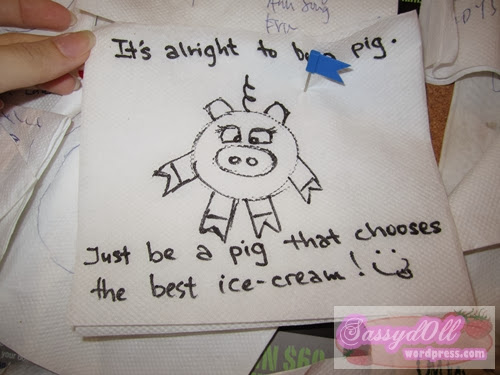 It's alright to be a pig.
Just be a pig that chooses
the best ice-cream!
Sassyd0ll
wordpress.com
N $60